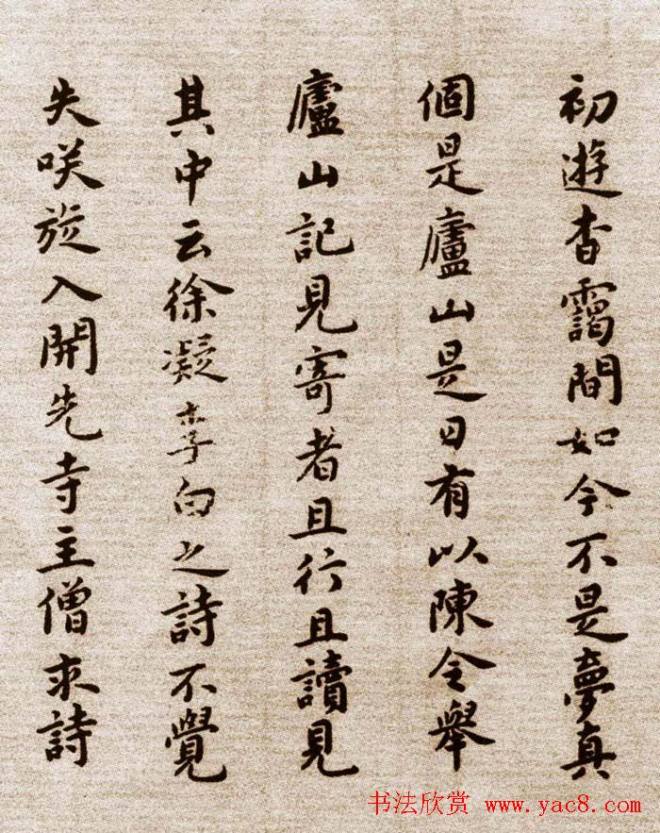 初遊杳靄間如今不是夢真
個是廬山是日有以陳令舉
廬山記見寄者且行且讀見
其中云徐凝李白之詩不覺
失咲旋入開先寺主僧求詩
书法欣赏 www.yac8.com